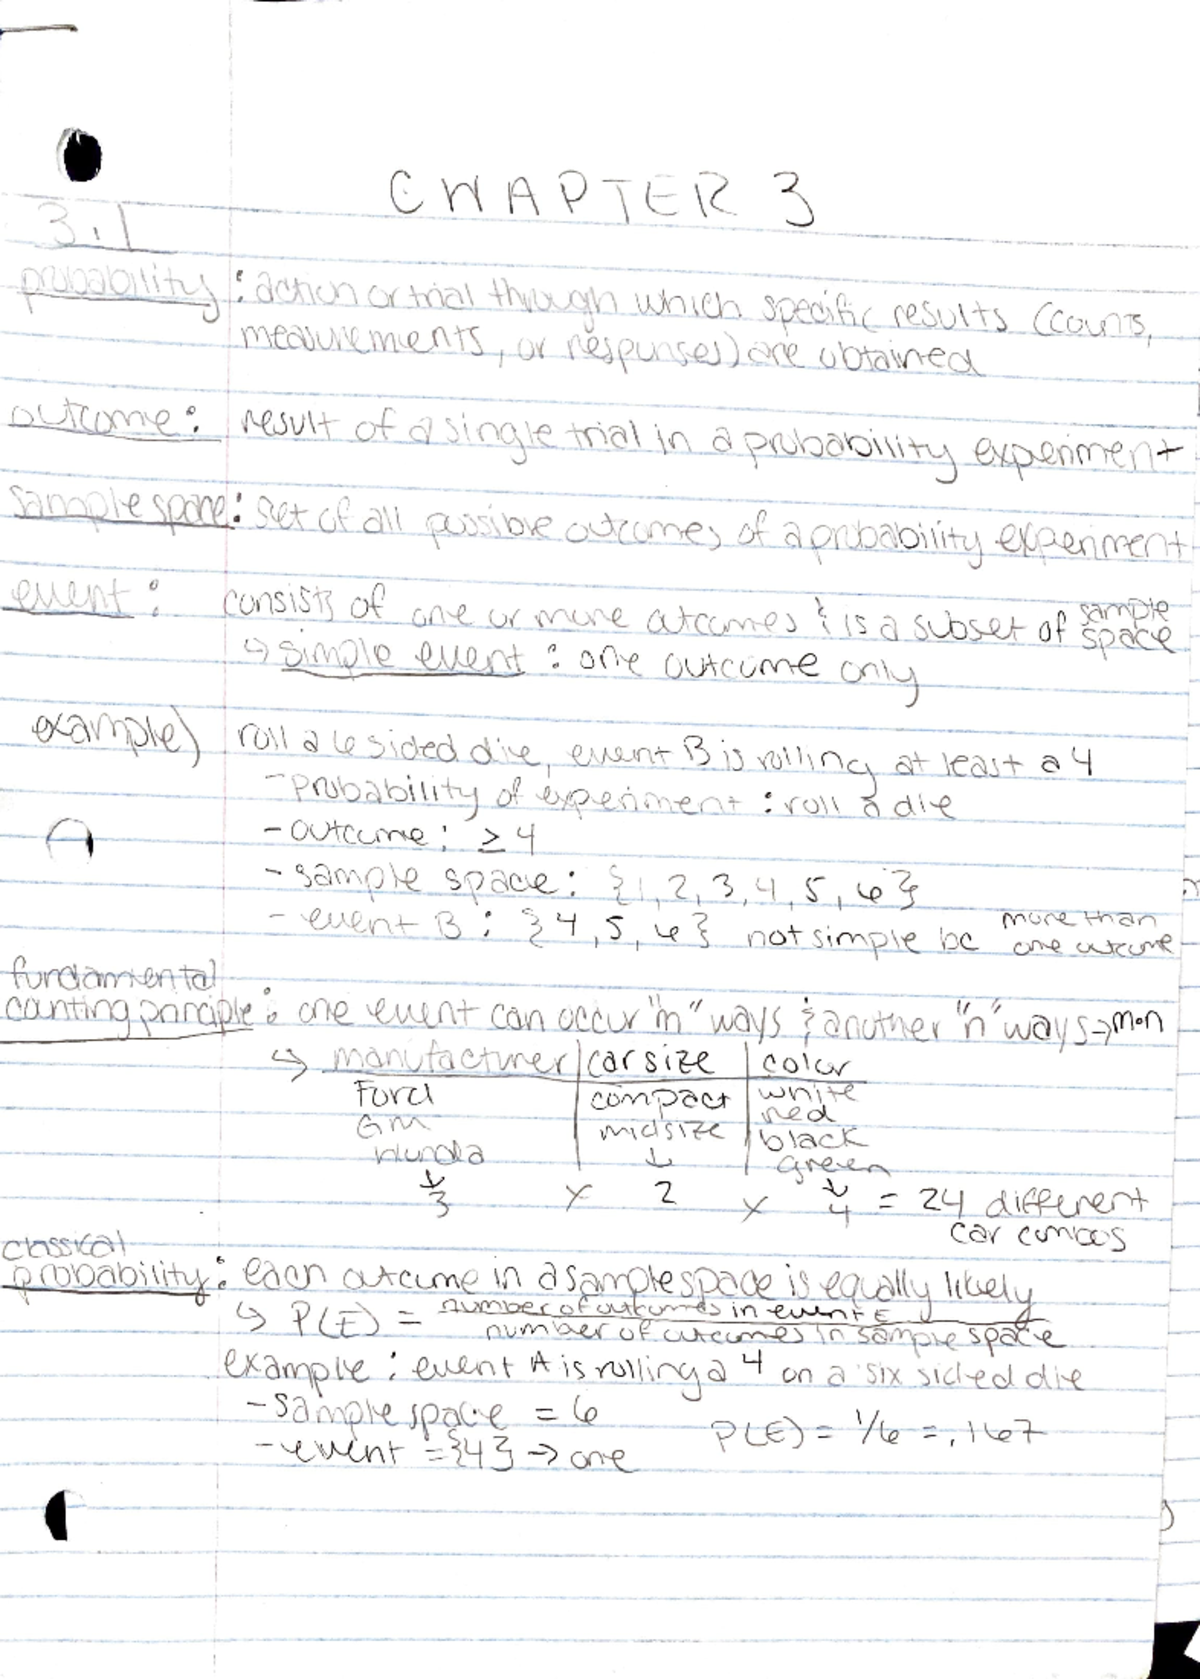 CHAPTER 3
3.1
probability: action or trial through which specific results (counts,
measurements, or responses) are obtained
outcome: result of a single trial in a probability experiment
sample space: set of all possible outcomes of a probability experiment
event: consists of one or more outcomes & is a subset of sample space
↳ simple event: one outcome only
example) roll a 6 sided die, event B is rolling at least a 4
- probability of experiment: roll a die
- outcome: ≥ 4
- sample space: {1, 2, 3, 4, 5, 6}
- event B: {4, 5, 6} not simple bc more than one outcome
fundamental
counting principle: one event can occur "m" ways & another "n" ways → m•n
↳ manufacturer | car size | color
Ford compact white
GM midsize red
Honda ↓ black
green
↓ ↓
3 x 2 x 4 = 24 different
car combos
classical
probability: each outcome in a sample space is equally likely
↳ P(E) = number of outcomes in event E
number of outcomes in sample space
example: event A is rolling a 4 on a six sided die
- sample space = 6 P(E) = 1/6 = .167
- event = {4} → one